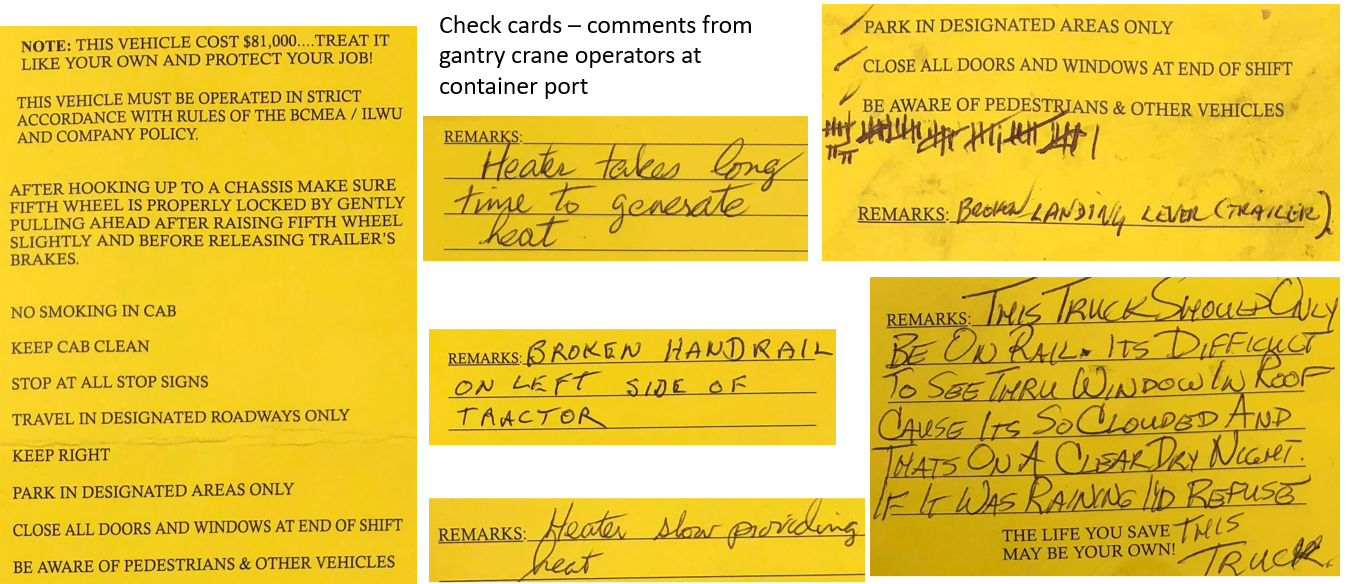 NOTE: THIS VEHICLE COST $81,000....TREAT IT
LIKE YOUR OWN AND PROTECT YOUR JOB!
THIS VEHICLE MUST BE OPERATED IN STRICT
ACCORDANCE WITH RULES OF THE BCMEA / ILWU
AND COMPANY POLICY.
AFTER HOOKING UP TO A CHASSIS MAKE SURE
FIFTH WHEEL IS PROPERLY LOCKED BY GENTLY
PULLING AHEAD AFTER RAISING FIFTH WHEEL
SLIGHTLY AND BEFORE RELEASING TRAILER'S
BRAKES.
NO SMOKING IN CAB
KEEP CAB CLEAN
STOP AT ALL STOP SIGNS
TRAVEL IN DESIGNATED ROADWAYS ONLY
KEEP RIGHT
PARK IN DESIGNATED AREAS ONLY
CLOSE ALL DOORS AND WINDOWS AT END OF SHIFT
BE AWARE OF PEDESTRIANS & OTHER VEHICLES
Check cards – comments from
gantry crane operators at
container port
REMARKS:
Heater takes long
time to generate
heat
REMARKS: BROKEN HANDRAIL
ON LEFT SIDE OF
TRACTOR
REMARKS: Heater slow providing
heat
PARK IN DESIGNATED AREAS ONLY
CLOSE ALL DOORS AND WINDOWS AT END OF SHIFT
BE AWARE OF PEDESTRIANS & OTHER VEHICLES
REMARKS: BROKEN LANDING LEVER (TRAILER)
REMARKS: THIS TRUCK SHOULD ONLY
BE ON RAIL. ITS DIFFICULT
TO SEE THRU WINDOW IN ROOF
CAUSE ITS SO CLOUDED AND
THATS ON A CLEAR DRY NIGHT.
IF IT WAS RAINING I'D REFUSE
THE LIFE YOU SAVE THIS
MAY BE YOUR OWN! TRUCK.